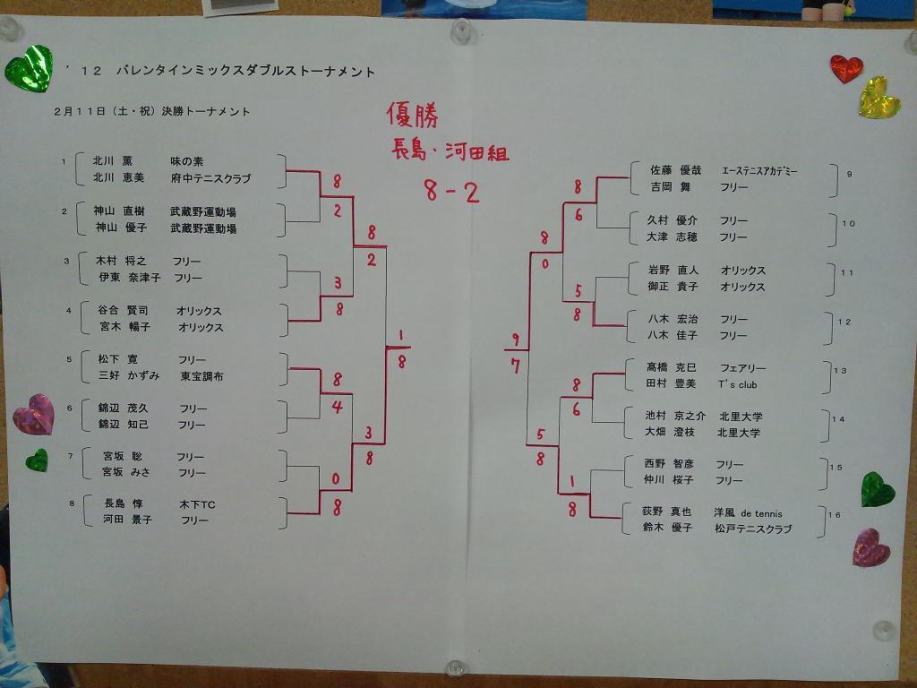 '12 バレンタインミックスダブルストーナメント
2月11日(土・祝)決勝トーナメント
優勝
長島・河田組
8-2
1 北川 薫 味の素
北川 恵美 府中テニスクラブ
2 神山 直樹 武蔵野運動場
神山 優子 武蔵野運動場
3 木村 将之 フリー
伊東 奈津子 フリー
4 谷合 賢司 オリックス
宮木 暢子 オリックス
5 松下 寛 フリー
三好 かずみ 東宝調布
6 錦辺 茂久 フリー
錦辺 知己 フリー
7 宮坂 聡 フリー
宮坂 みさ フリー
8 長島 惇 木下TC
河田 景子 フリー
8
2
3
8
8
4
0
8
8
2
3
8
1
8
佐藤 優哉 エーステニスアカデミー 9
吉岡 舞 フリー
久村 優介 フリー 10
大津 志穂 フリー
岩野 直人 オリックス 11
御正 貴子 オリックス
八木 宏治 フリー 12
八木 佳子 フリー
髙橋 克巳 フェアリー 13
田村 豊美 T's club
池村 京之介 北里大学 14
大畑 澄枝 北里大学
西野 智彦 フリー 15
仲川 桜子 フリー
荻野 真也 洋風 de tennis 16
鈴木 優子 松戸テニスクラブ
8
6
5
8
8
6
1
8
8
0
5
8
9
7